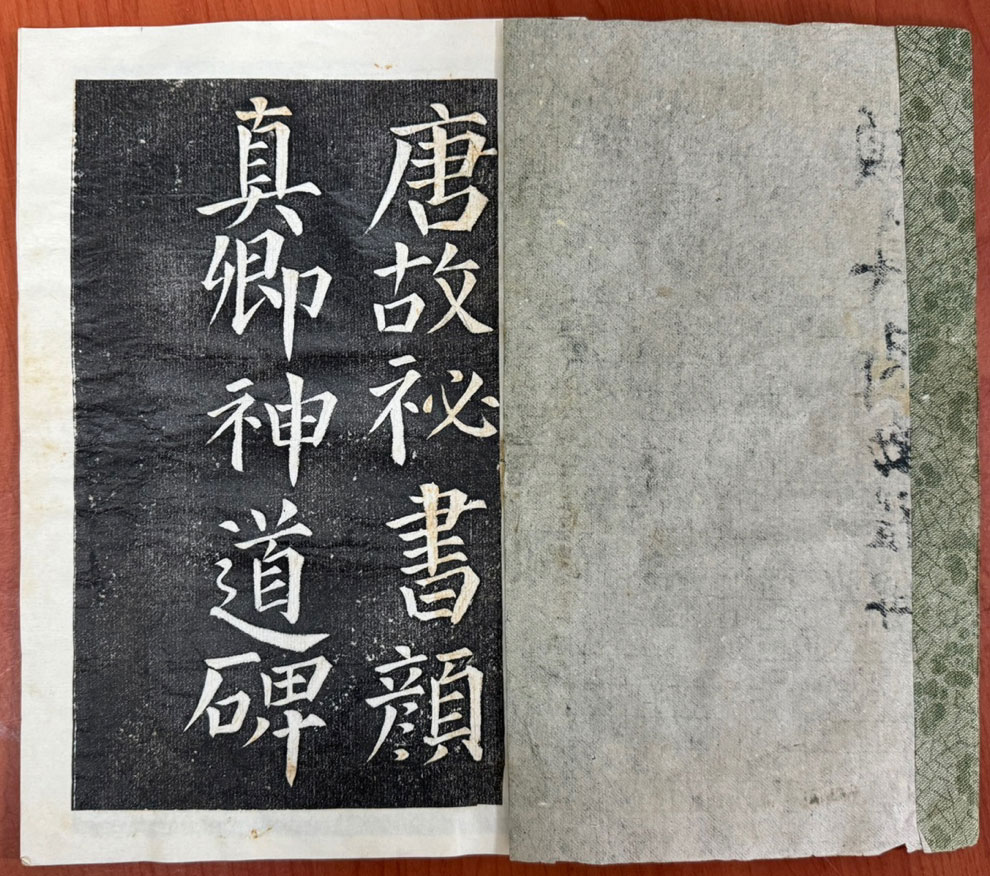 唐故祕書顔
真卿神道碑